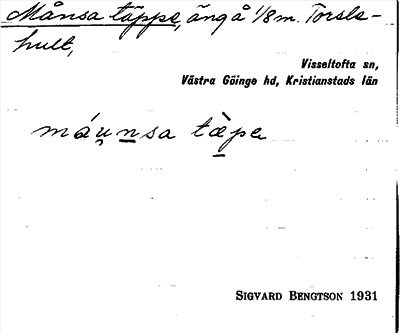 Månsa täppe, äng å 1/8 m. Torsle-
hult,
Visseltofta sn,
Västra Göinge hd, Kristianstads län
máu̯n̲sa tæ̲̀pe
SIGVARD BENGTSON 1931